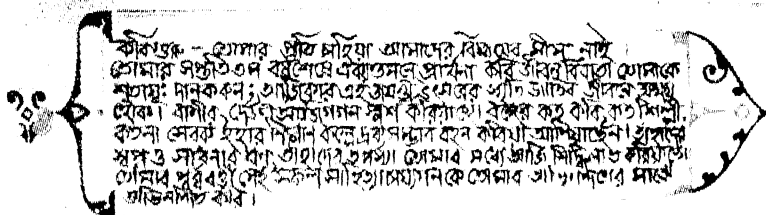 কবিগুরু – তোমার প্রতি চাহিয়া আমাদের বিস্ময়ের সীমা নাই।
তোমার সপ্ততিতম বর্ষশেষে একান্তমনে প্রার্থনা করি জীবন বিধাতা তোমাকে
শতায়ুঃ দান করুন; আজিকার এই জয়ন্তী উৎসবের স্মৃতি জাতির জীবনে অক্ষয়
হোক। বাণীর দেউল আজি গগন স্পর্শ করিয়াছে। বঙ্গের কত কবি, কত শিল্পী,
কতনা সেবক ইহার নির্মাণকল্পে দ্রব্যসম্ভার বহন করিয়া আনিয়াছেন। তাঁহাদের
স্বপ্ন ও সাধনার ধন তাঁহাদের তপস্যা তোমার মধ্যে আজি সিদ্ধিলাভ করিয়াছে।
তোমার পূর্ববর্ত্তী সেই সকল সাহিত্যাচার্য্যগনকে তোমার অভিনন্দনের মাঝে
অভিনন্দিত করি।